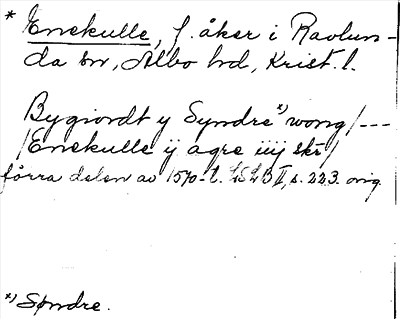 * Enekulle, f. åker i Ravlun-
da sn, Albo hd, Krist. l.
Bygiordt y Syndre*) wong/---
/Enekulle ij agre iiij skr/
förra delen av 1570-t. LSLB II, s. 223. orig.
*) Søndre.